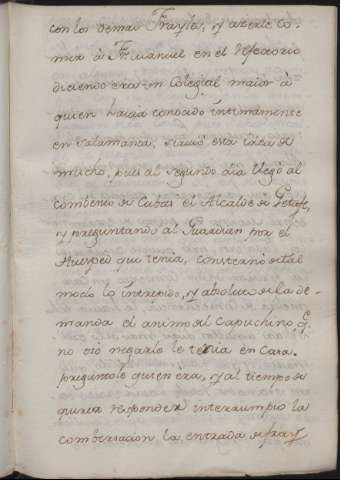 con los demas Frayles, y azerle co-
mer à Fr. Manuel en el Refectorio
diciendo era un Colegial maior à
quien havia conocido intimamente
en Salamanca; sirvió esta idea de
mucho, pues al segundo dia llegó al
combento de Cubas el Alcalde de Getafe,
y preguntando al Guardian por el
Huesped que tenia, consternó de tal
modo lo intrepido, y absoluto de la de-
manda el animo del Capuchino, q.
no oso negarlo le tenia en Casa.
preguntole quien era, y al tiempo de
querer responder interrumpio la
combersacion la entrada de fray